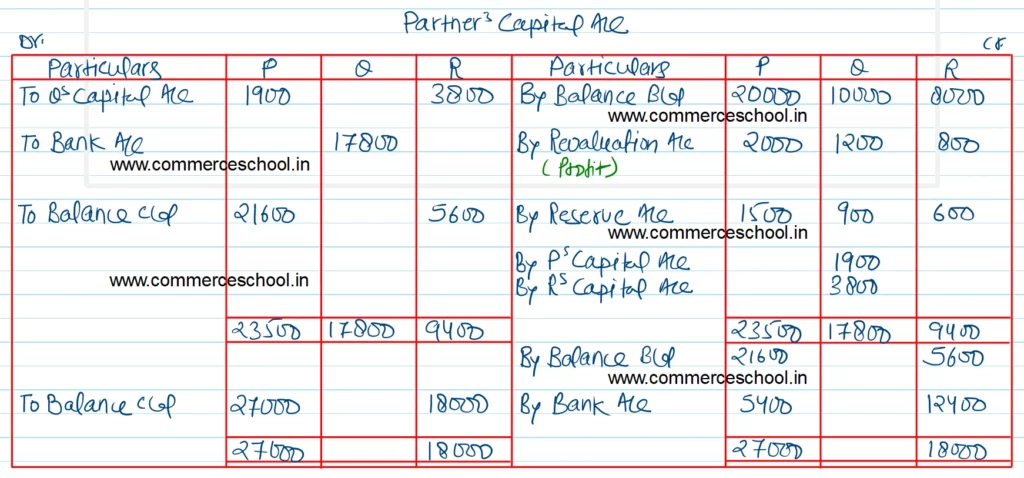 Partner's Capital A/c
Dr. Cr
Particulars P Q R Particulars P Q R
To Q's Capital A/c 1900 3800 By Balance B/d 20000 10000 8000
www.commerceschool.in
To Bank A/c 17800 By Revaluation A/c 2000 1200 800
www.commerceschool.in (Profit)
To Balance c/d 21600 5600 By Reserve A/c 1500 900 600
www.commerceschool.in
By P's Capital A/c 1900
www.commerceschool.in By R's Capital A/c 3800
23500 17800 9400 23500 17800 9400
By Balance B/d 21600 5600
www.commerceschool.in
To Balance c/d 27000 18000 By Bank A/c 5400 12400
27000 18000 27000 18000